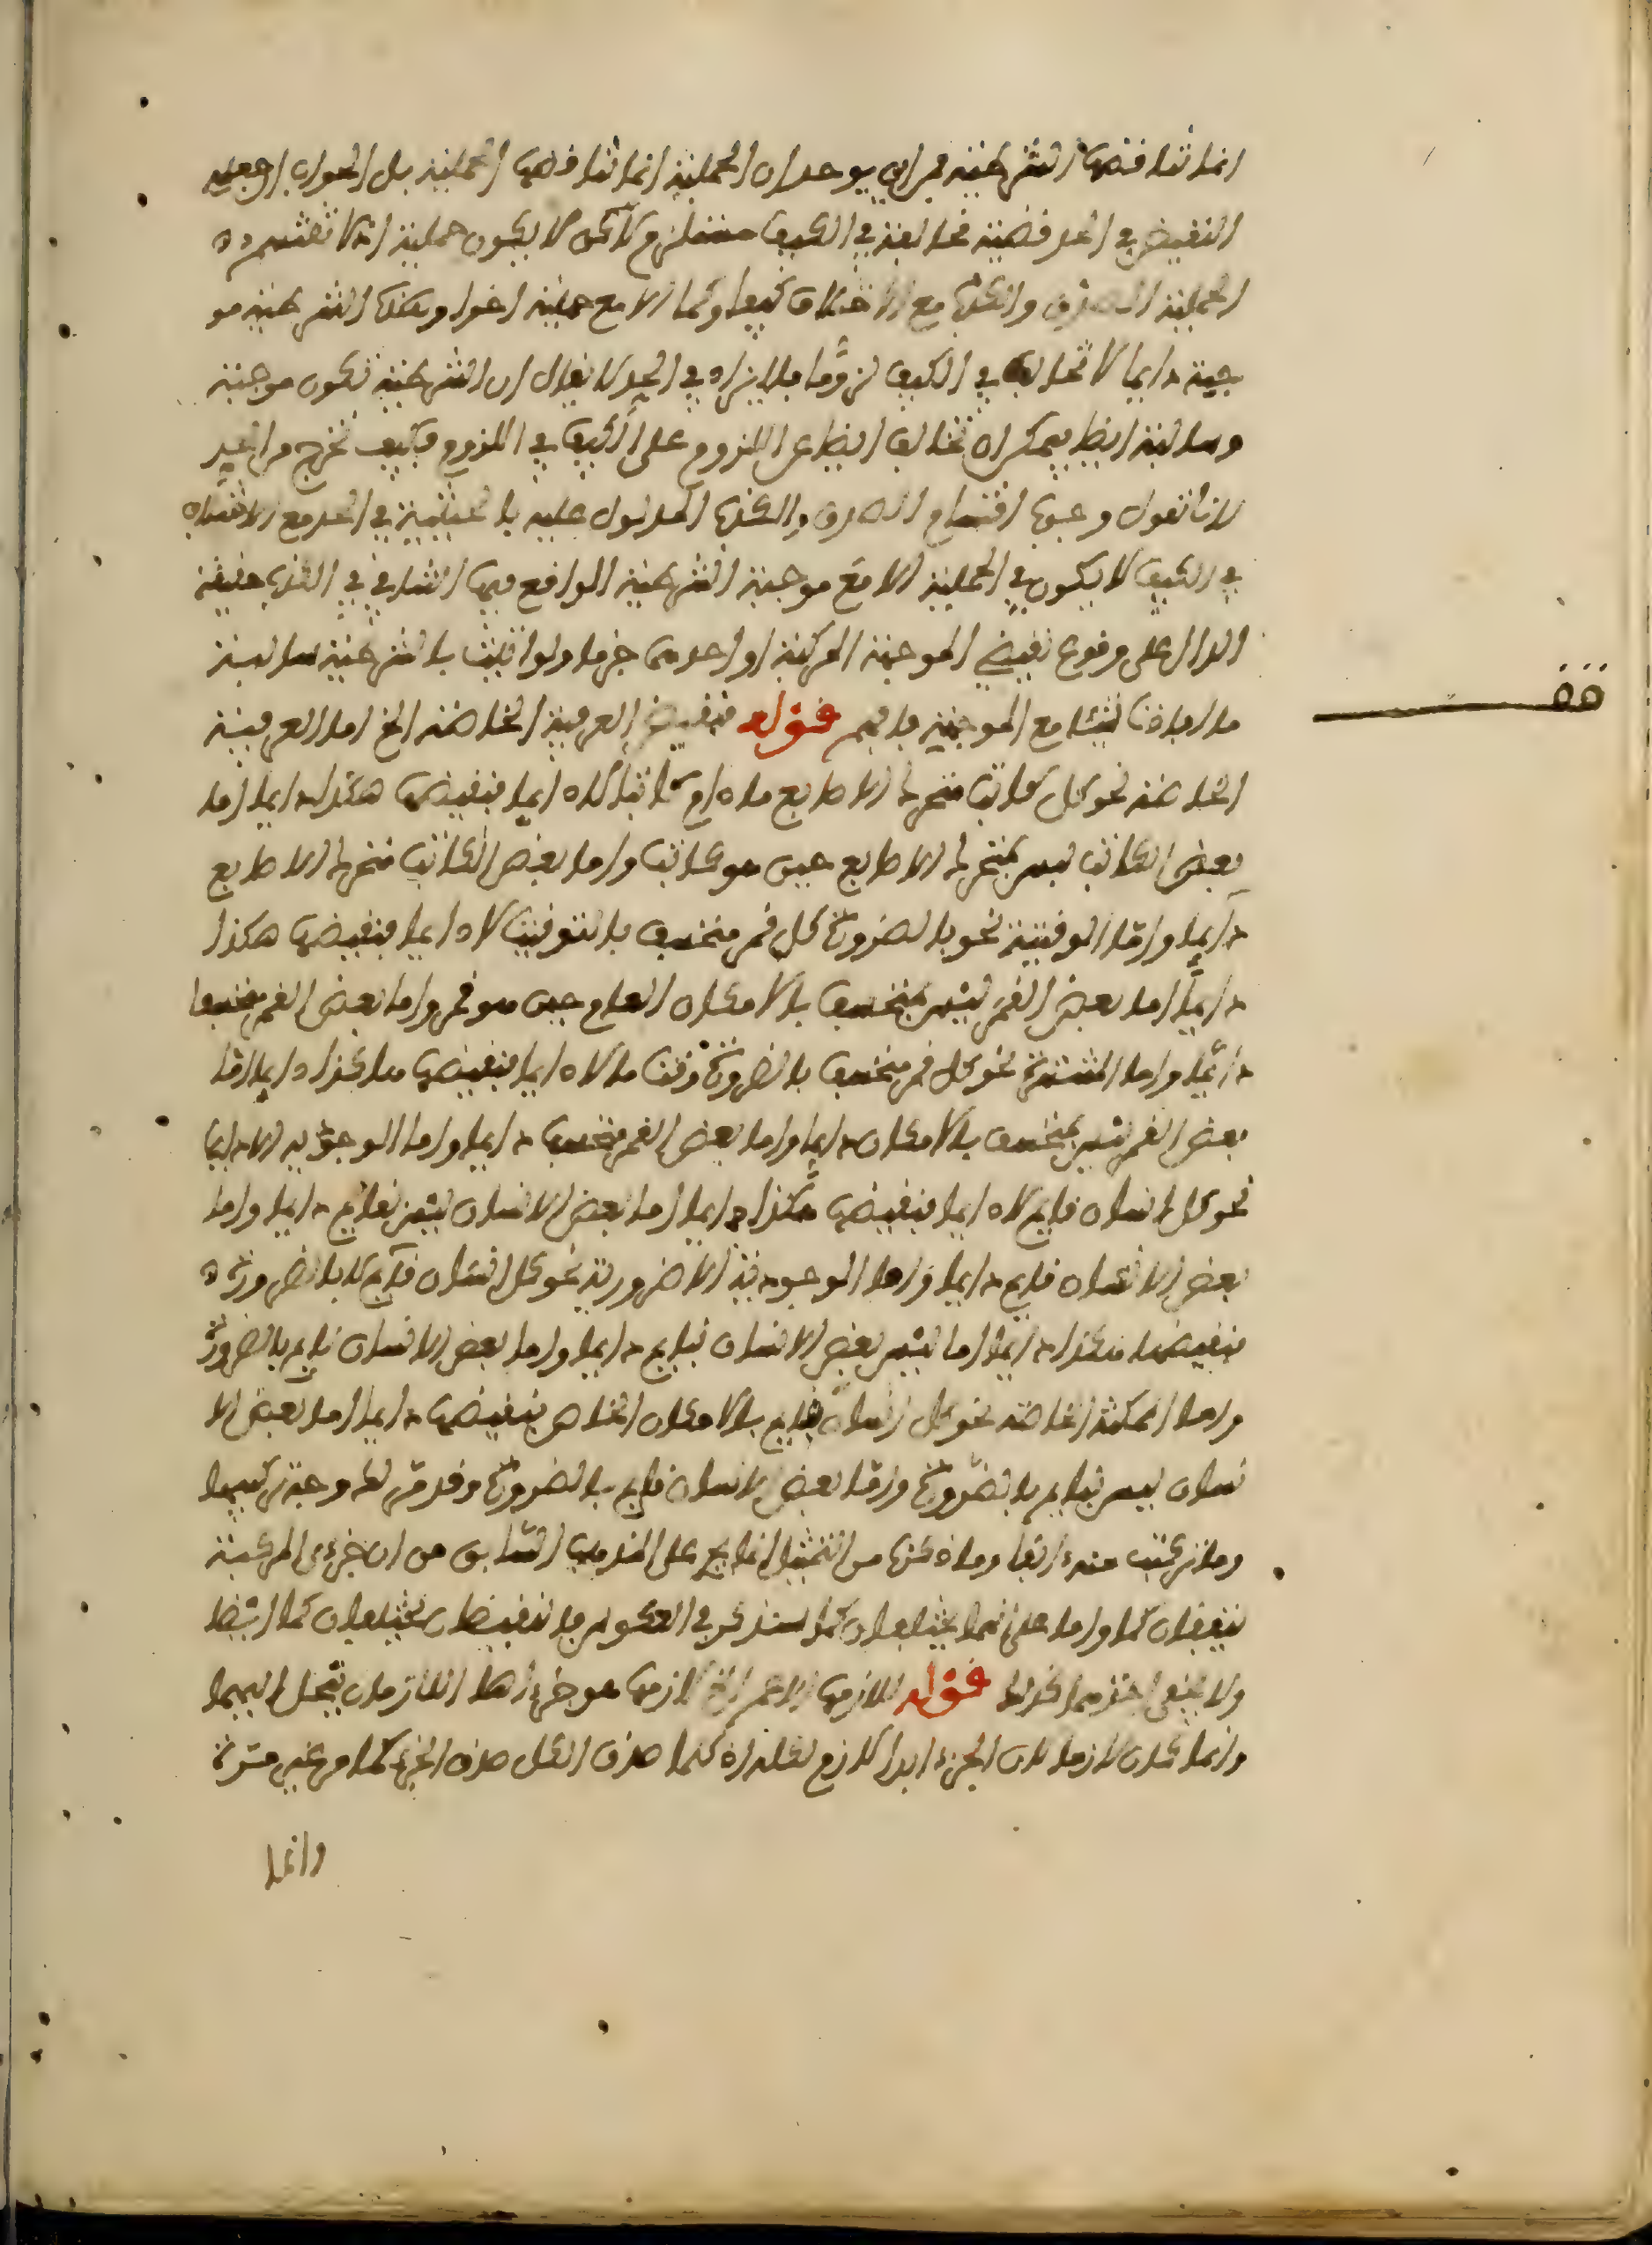 انما تناقضها الشرطية فمن اين يوجد ان الحملية انما تناقضها الحملية بل الجواب ان جعله
النقيض في الحد قضية مخالفة في الكيف مستلزم لان لا يكون حملية اذ لا تقتسم
الحملية الصدق والكذب مع الاختلاف كيفا وكما الا مع حملية اخرا وتلك الشرطية مو
جبة دايما لا تخالف في الكيف لزوما فلا يراد في الحد لا يقال ان الشرطية تكون موجبة
وسالبة ايضا فيمكن ان تخالف ايضا على اللزوم على الكيف في اللزوم فكيف تخرج من الحد
لانا نقول وجب اقتسام الصدق والكذب المدلول عليه بالحيثية في الحد مع الاختلاف
في الكيف لا يكون في الحملية الا مع موجبة الشرطية الواقع فيها التنافي في الكذب حقيقة
الدال على وقوع نقيضي الموجهة المركبة او احدهما جزما ولو اتيت بالشرطية سالبة
ما افادت شيئا مع الموجبة فافهم قوله فنقيض العرفية الخاصة الخ اما العرفية
الخاصة نحو كل كاتب متحرك الاصابع مادام كاتبا لا دايما فنقيضها هكذا دايما اما
بعض الكاتب ليس بمتحرك الاصابع حين هو كاتب واما بعض الكاتب متحرك الاصابع
دايما واما الوقتية نحو بالضرورة كل قمر منخسف بالتوقيت لا دايما فنقيضها هكذا
دايما اما بعض القمر ليس بمنخسف بالامكان العام حين هو قمر واما بعض القمر منخسفا
دايما واما المنتشرة نحو كل قمر منخسف بالضرورة وقتا ما لا دايما فنقيضها هكذا دايما اما
بعض القمر ليس بمنخسف بالامكان دايما واما بعض القمر منخسف دايما واما الوجودية اللا دايما
نحو كل انسان قايم لا دايما فنقيضها هكذا دايما اما بعض الانسان ليس بقايم دايما واما
بعض الانسان قايم دايما واما الوجودية اللا ضرورية نحو كل انسان قايم لا بالضرورة
فنقيضها هكذا دايما اما ليس بعض الانسان بقايم دايما واما بعض الانسان قايم بالضرورة
واما الممكنة الخاصة نحو كل انسان قايم بالامكان الخاص فنقيضها دايما اما بعض الا
نسان ليس بقايم بالضرورة واما بعض الانسان قايم بالضرورة وقد مر لك وجه تركيبها
وما تركبت منه انفا وما ذكرنا من التمثيل انما يجي على المذهب السابق من ان جزءي المركبة
يتفقان كما واما على انهما يختلفان كما سنذكر في العكوس فالنقيضان يختلفان كما ايضا
ولا يخفى اخذهما قوله اللازمها الاعم الخ لازمها هو جزءها اللازمان لها
وانما كان لازما لان الجزء ابدا لازم لكله اذ كلما صدق الكل صدق الجزء كما مر غير مرة
وانما
قف